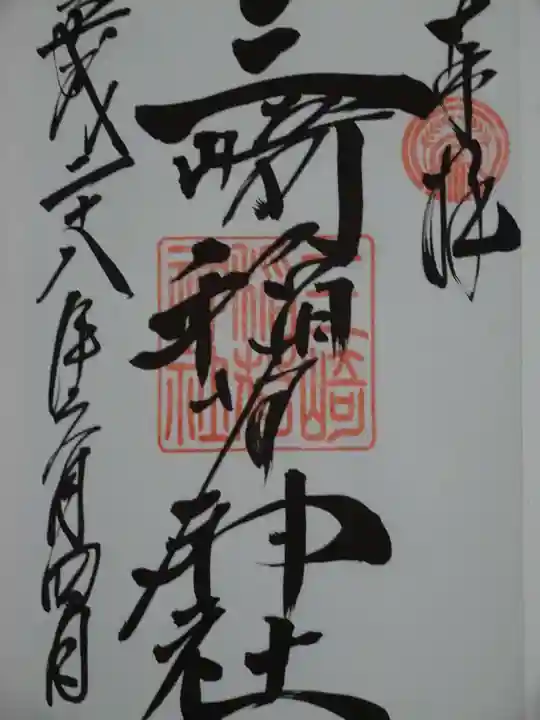 奉拝
三崎稲荷神社
三崎稲荷神社
平成二十八年六月四日